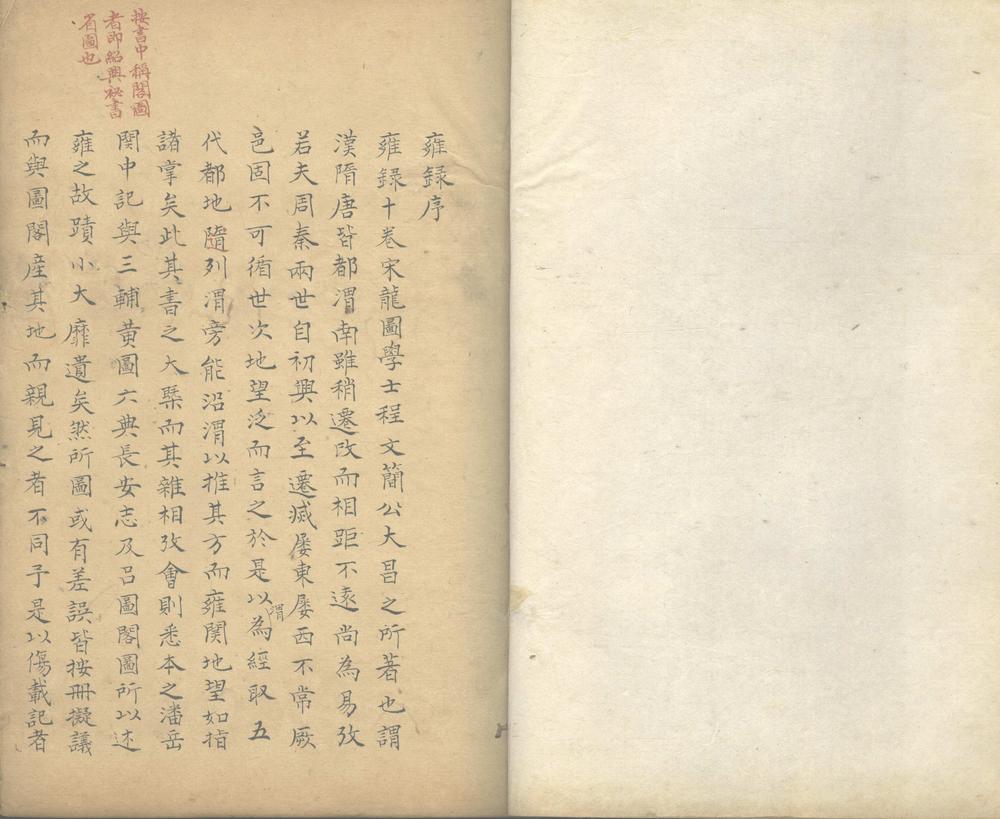 按書中稱閣圖
者即紹興祕書
省圖也
雍録序
雍録十卷宋龍圖學士程文簡公大昌之所著也謂
漢隋唐皆都渭南雖稍遷改而相距不遠尚為易攷
若夫周秦兩世自初興以至遷滅屡東屡西不常厥
邑固不可循世次地望泛而言之於是以渭為經取五
代都地隨列渭旁能沿渭以推其方而雍関地望如指
諸掌矣此其書之大槩而其雜相攷會則悉本之潘岳
関中記與三輔黄圖六典長安志及吕圖閣圖所以述
雍之故蹟小大靡遺矣然所圖或有差誤皆按冊擬議
而與圖閣産其地而親見之者不同予是以傷載記者